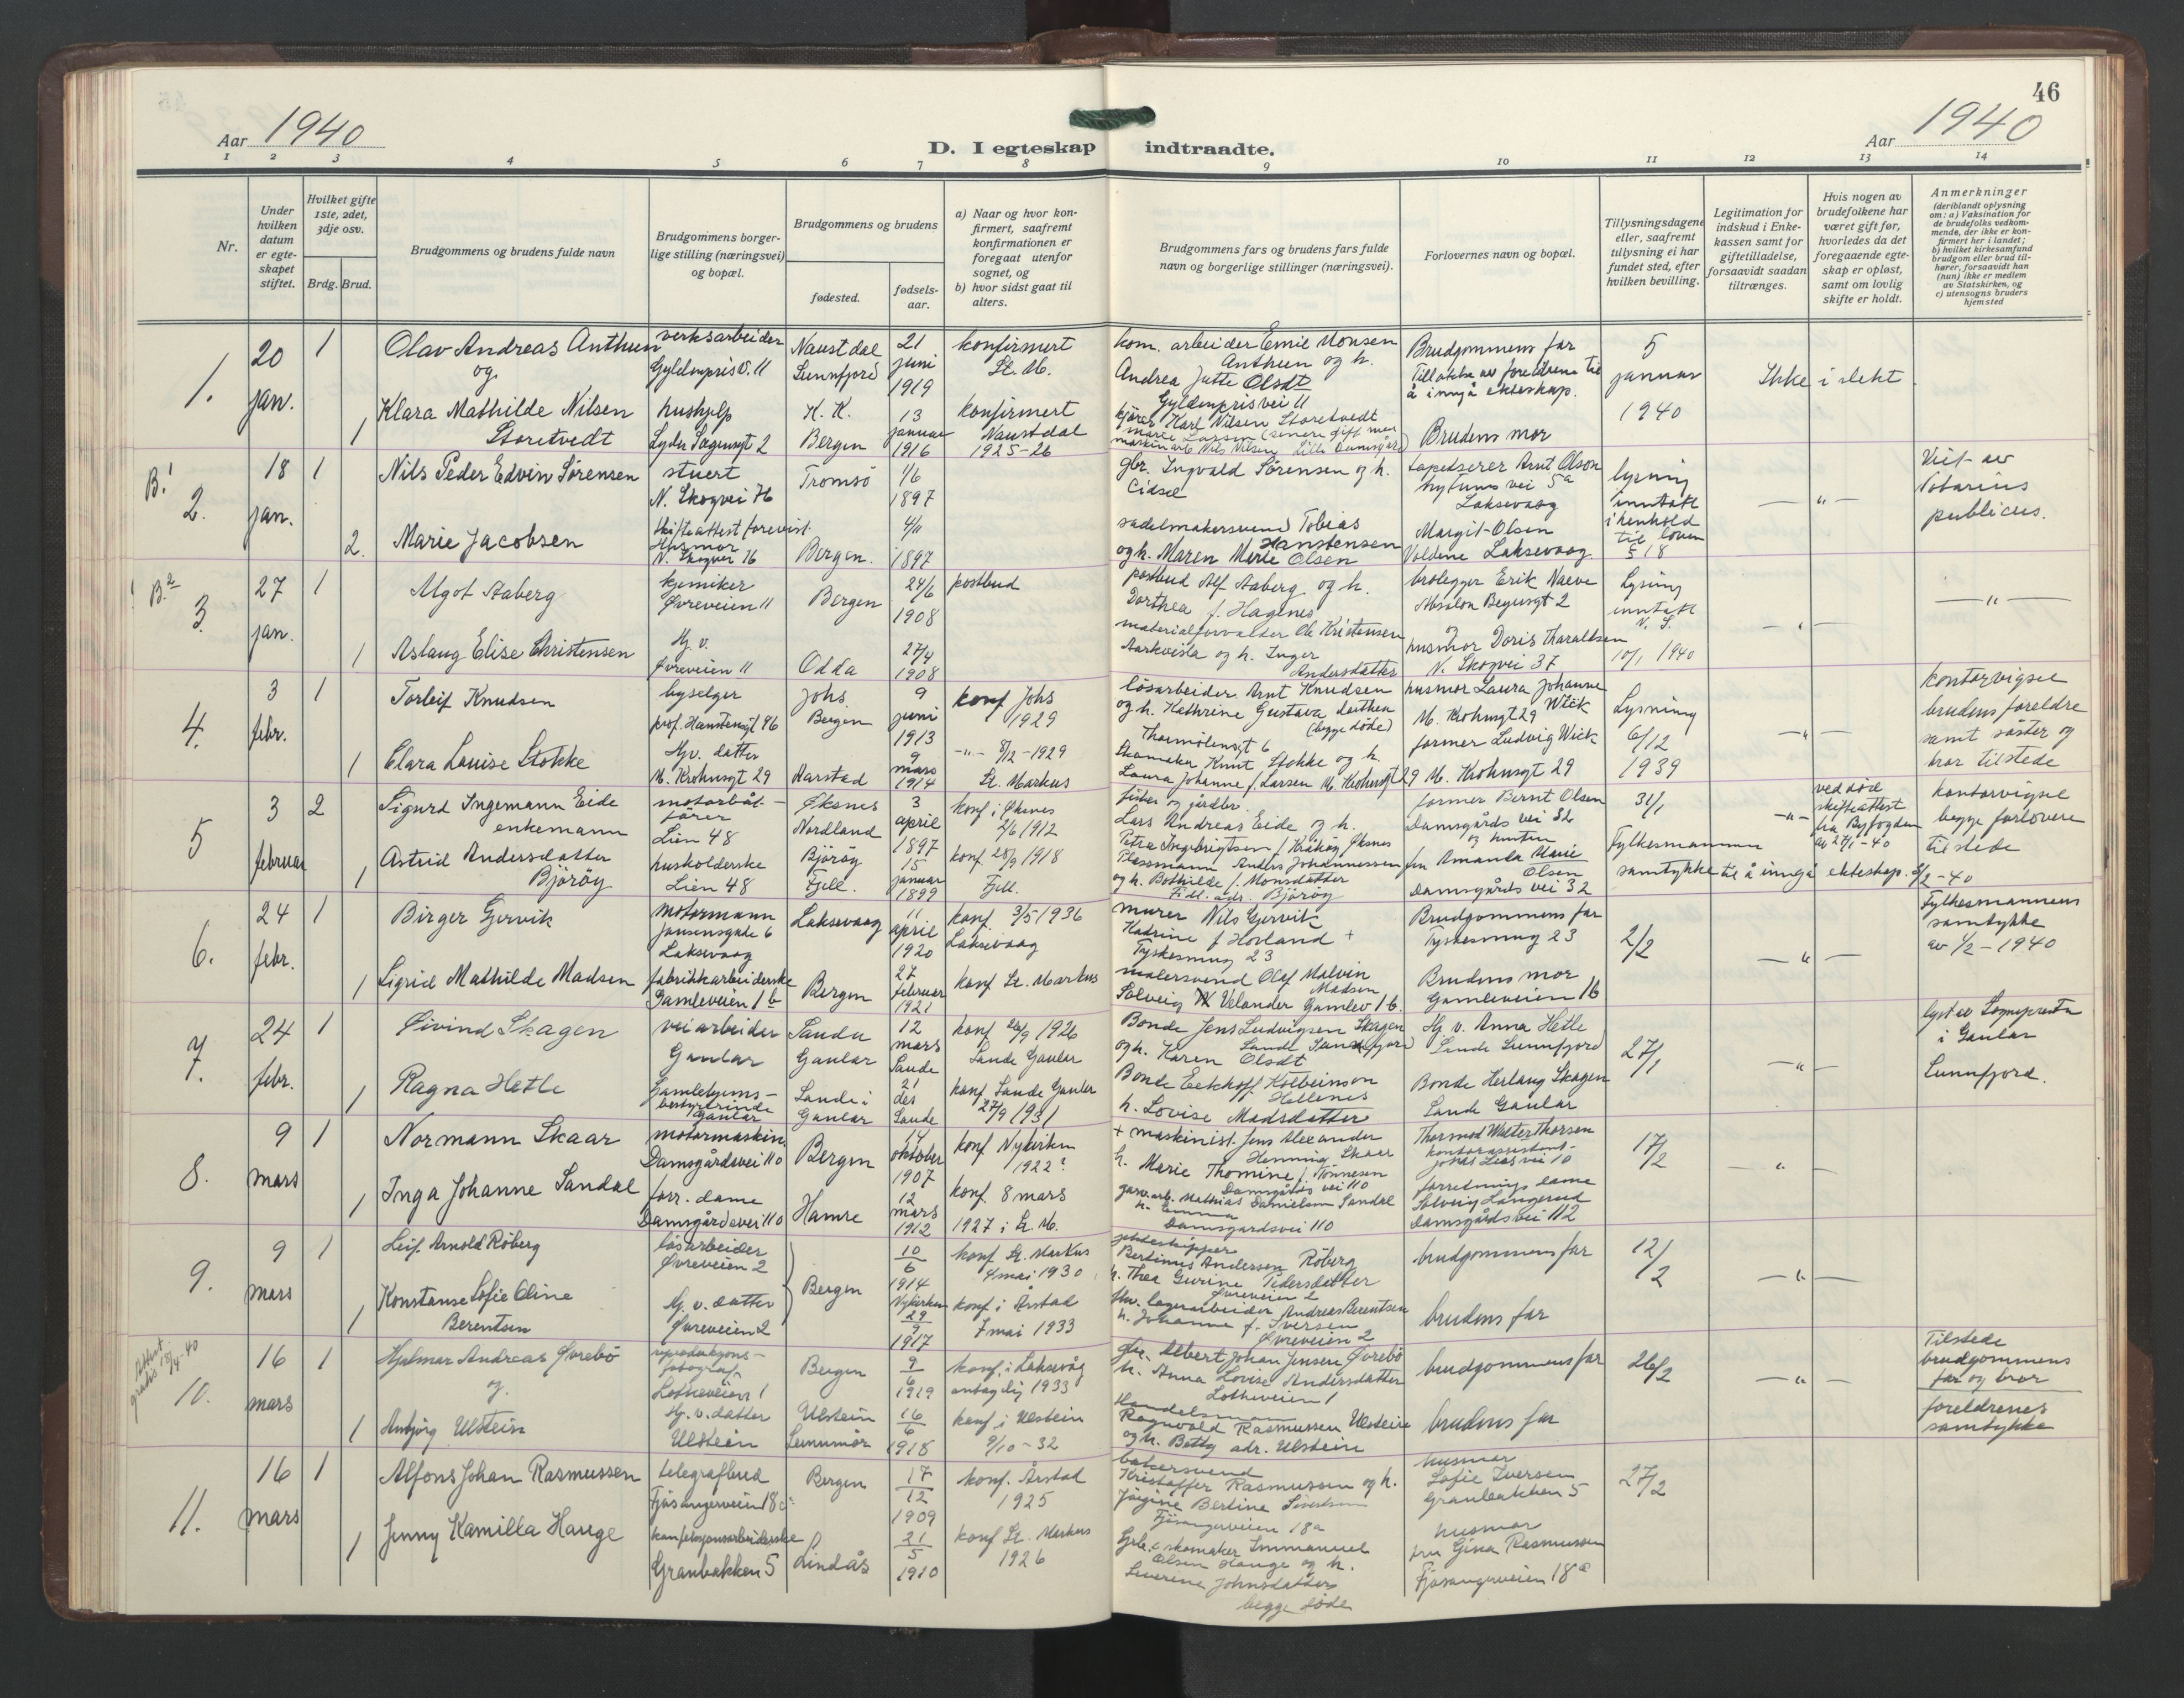 46
Aar 1940
D. I egteskap indtraadte.
Aar 1940
1 2 3 4 5 6 7 8 9 10 11 12 13 14
Nr.
Under hvilken datum er egteskapet stiftet.
Hvilket gifte 1ste, 2det, 3dje osv.
Brdg. Brud.
Brudgommens og brudens fulde navn
Brudgommens borgerlige stilling (næringsvei) og bopæl.
Brudgommens og brudens
fødested.
fødselsaar.
a) Naar og hvor konfirmert, saafremt konfirmationen er foregaat utenfor sognet, og
b) hvor sidst gaat til alters.
Brudgommens fars og brudens fars fulde navn og borgerlige stillinger (næringsvei).
Forlovernes navn og bopæl.
Tillysningsdagene eller, saafremt tillysning ei har fundet sted, efter hvilken bevilling.
Legitimation for indskud i Enkekassen samt for giftetilladelse, forsaavidt saadan tiltrænges.
Hvis nogen av brudefolkene har været gift før, hvorledes da det foregaaende egteskap er opløst, samt om lovlig skifte er holdt.
Anmerkninger
(deriblandt oplysning om: a) Vaksination for de brudefolks vedkommende, der ikke er konfirmert her i landet; b) hvilket kirkesamfund brudgom eller brud tilhører, forsaavidt han (hun) ikke er medlem av Statskirken, og c) utensogns bruders hjemsted
1. 20 jan. 1
Olav Andreas Anthun
og
verksarbeider
Gyldenprisv. 11
Naustdal
Sunnfjord
21 juni 1919
konfirmert
St. M.
kom. arbeider Emil Monsen
Anthun og h.
Andrea Jutte Olsdt
Gyldenprisvei 11
Brudgommens far
Tillatelse av foreldrene til
å inngå ekteskap.
5 januar 1940
Ikke i slekt
1 Klara Mathilde Nilsen
Storetvedt
hushjelp
Lyder Sagensgt 2
K. K.
Bergen
13 januar 1916
konfirmert
Naustdal
1925-26
kjører Karl Nilsen Storetvedt
Brudens mor
B.1 2. 18 jan. 1
Nils Peder Edvin Sørensen
stuert
N. Skogvei 76
Tromsö
1/6 1897
gbr. Ingvald Sørensen og h.
Cidsel
tapetserer Arnt Olson
Laksevaag
lysning
inntatt
i henhold
til loven
§ 18
— " —
Viet av
Notarius
publicus.
2. Marie Jacobsen
Skifteattest forevist.
Husmor
N. Skogvei 76
Bergen.
4/11 1897
sadelmakersvend Tobias
Hanstensen
og h. Maren Merte Olsen
Margit Olsen
Voldene Laksevaag
B.2 3. 27 jan. 1
Algot Aaberg
kjemiker
Øvreveien 11
Bergen
24/6 1908
postbud
postbud Alf Aaberg og h.
Dorthea f. Hagenes
brolegger Erik Naeve
Absalon Beyersgt 2
og
Lysning
inntatt
N. S.
10/1 1940
— " —
1 Aslaug Elise Christensen
Hj. v.
Øvreveien 11
Odda
27/4 1908
materialforvalter Ole Kristensen
Aarkvisla og h. Inger
Andersdatter
husmor Doris Tharaldsen
N. Skogvei 37
4. 3 febr. 1
Torleif Knudsen
byselger
prof. Hanstensgt 96
Johs.
Bergen
9 juni 1913
konf Johs
1929
lösarbeider Arnt Knudsen
og h. Kathrine Gustava
(begge döde)
Thormølensgt 6
husmor Laura Johanne
Wiik
M. Krohnsgt 29
Lysning
6/12 1939
— " —
kontorvigsel
brudens foreldre
samt söster og
bror tilstede
1 Clara Louise Stokke
Hjv. datter
M. Krohnsgt 29
Aarstad
9 mars 1914
— " — 8/12 - 1929
St. Markus
Skomaker Knut Stokke og h.
Laura Johanne f. Larsen M. Krohnsgt 29
former Ludvig Wiik
M. Krohnsgt 29
5 3 februar 2
Sigurd Ingemann Eide
enkemann
motorbåt-
förer
Lien 48
Øksnes
Nordland
3 april 1897
konf i Øksnes
2/6 1912
fisker og gårdbr.
Lars Andreas Eide og h.
Petra Ingebrigtsen
former Bernt Olsen
Damsgårds vei 32
og hustru
31/1
— " —
ved död
skifteattest
fra Byfogden
av 27/1-40
kontorvigsel
begge forlovere
tilstede
1 Astrid Andersdatter
Björöy
husholderske
Lien 48
Björöy
Fjell.
15 januar 1899
konf 28/9 1918
Fjell.
Anders Johannessen
og h. Bothilde f. Monsdatter
Björöy
fru Amanda Marie
Olsen
Damsgårds vei 32
Fylkesmannen
samtykke til å inngå ekteskap. 2/2-40
6. 24 febr. 1
Birger Gjervik
Motormann
Jansensgade 6
Laksevaag
Laksevaag
11 april 1920
konf. 3/5 1936
Laksevaag
murer Nils Gjervik
Katrine f Hovland +
Tyskesmug 23
Brudgommens far
Tyskesmug 23
2/2
— " —
Fylkesmannens
samtykke
av 1/2 - 1940
1 Sigrid Mathilde Madsen
fabrikkarbeiderske
Gamleveien 1 b
Bergen
27 februar 1921
konf St. Markus
malersvend Olaf Malvin
Madsen
Solveig Velander Gamlev 1 b.
Brudens mor
Gamleveien 1b
7. 24 febr. 1
Øivind Skagen
veiarbeider
Gaular
Sande
Gaular
12 mars
Sande
konf 26/9 1926
Sande Gaular
Bonde Jens Ludvigsen Skagen
Sande Sunnfjord
og h. Karen Olsdt
Hj v. Anna Hetle
Sande Sunnfjord
27/1
— " —
lyst av Sognepresten
i Gaular
Sunnfjord.
1 Ragna Hetle
Gamlehjems-
bestyrerinde
Gaular
Sande i
Gaular
21 des
Sande
konf Sande Gaular
27/9 1931
Bonde Eckhoff Kolbeinson
Hellenes
h. Lovise Madsdatter
Bonde Herlaug Skagen
Sande Gaular
8. 9 mars 1
Normann Skaar
motormaskin.
Damsgårdsvei 110
Bergen
14 oktober 1907
konf Nykirken
1922?
+ maskinist. Jens Alexander
Henning Skaar
h. Marie Thomine f. Tönnesen
Damsgårds vei 110
Thormod Walter Thorsen
kontorassistent
Johns Lies vei 10
17/2
— " —
1 Inga Johanne Sandal
forr. dame
Damsgårdsvei 110
Hamre
12 mars 1912
konf. 8 mars
1927 i St. M.
garv. arb. Mathias Danielsen Sandal
h. Emma
Damsgårdsvei 110
forretnings dame
Solveig Langerud
Damsgårdsvei 112
9. 9 mars 1
Leif Arnold Röberg
lösarbeider
Øvreveien 2
Bergen
10/6 1914
Nykirken
konf St. Markus
4 mai 1930
jekteskipper
Bertinius Andersen Röberg
h. Thea Gurine Pedersdatter
Øvreveien 2
brudgommens far
12/2
— " —
1 Konstanse Sofie Oline
Berentsen
Hj. v. datter
Øvreveien 2
29/9 1917
konf i Årstad
7 mai 1933
lagerarbeider Andreas Berentsen
h. Johanne f. Iversen
Øvreveien 2
brudens far
Attest
gratis 18/4-40
10. 16 mars 1
Hjalmar Andreas Øvrebö
og
reproduksjons-
fotograf
Lotheveien 1
Bergen
9/6 1919
konf. i Laksevåg
antagelig 1933
gbr. Albert Johan Jensen Øvrebö
h. Anna Lovise Andersdatter
Lotheveien 1
brudgommens far
26/2
— " —
Tilstede
brudgommens
far og bror
1 Anbjørg Ulstein
Hj. v. datter
Ulstein
Ulstein
Sunnmör
16/6 1918
konf i Ulstein
9/10 - 32
Handelsmann
Ragnvald Rasmussen Ulstein
og h. Betty adr. Ulstein
brudens far
foreldrenes
samtykke
11. 16 mars 1
Alfons Johan Rasmussen
telegrafbud
Fjösangerveien 18a
Bergen
17/12 1909
konf. Årstad
1925
bakersvend
Kristoffer Rasmussen og h.
Jörgine Bertine Sivertsen
Fjösangerveien 18a
husmor
Sofie Iversen
Granbakken 5
27/2
1 Jenny Kamilla Hauge
konfeksjonsarbeiderske
Granbakken 5
Lindås
21/5 1910
konf St. Markus
1926
Gbr. & skomaker Immanuel
Olsen Hauge og h.
Severine Johnsdatter
begge döde
husmor
fru Gina Rasmussen
Fjösangerveien 18a